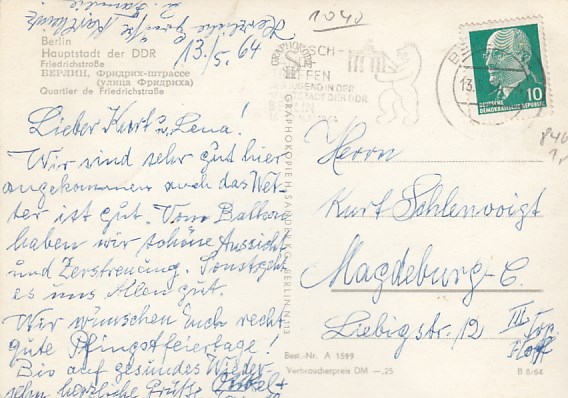 Herzliche Grüße
13./5. 64
Berlin
Hauptstadt der DDR
Friedrichstraße
БЕРЛИН, Фридрих-штрассе
(улица Фридриха)
Quartier de Friedrichstraße
Lieber Kurt u. Lena!
Wir sind sehr gut hier
angekommen auch das Wet-
ter ist gut. Vom Balkon
haben wir schöne Aussicht
und Zerstreuung. Sonst geht
es uns Allen gut.
Wir wünschen Euch recht
gute Pfingstfeiertage!
Bis auf gesundes Wieder-
sehn herzliche Grüße
GRAPHOKOPIE H. SANDER KG. BERLIN N 113
1040
TREFFEN
JUGEND IN DER
HAUPTSTADT DER DDR
BERLIN
13.
10
DEUTSCHE
DEMOKRATISCHE REPUBLIK
Herrn
Kurt Schlenvoigt
Magdeburg-C.
Liebigstr. 12 III
Best.-Nr. A 1599
Verbraucherpreis DM —,25
B 8/64